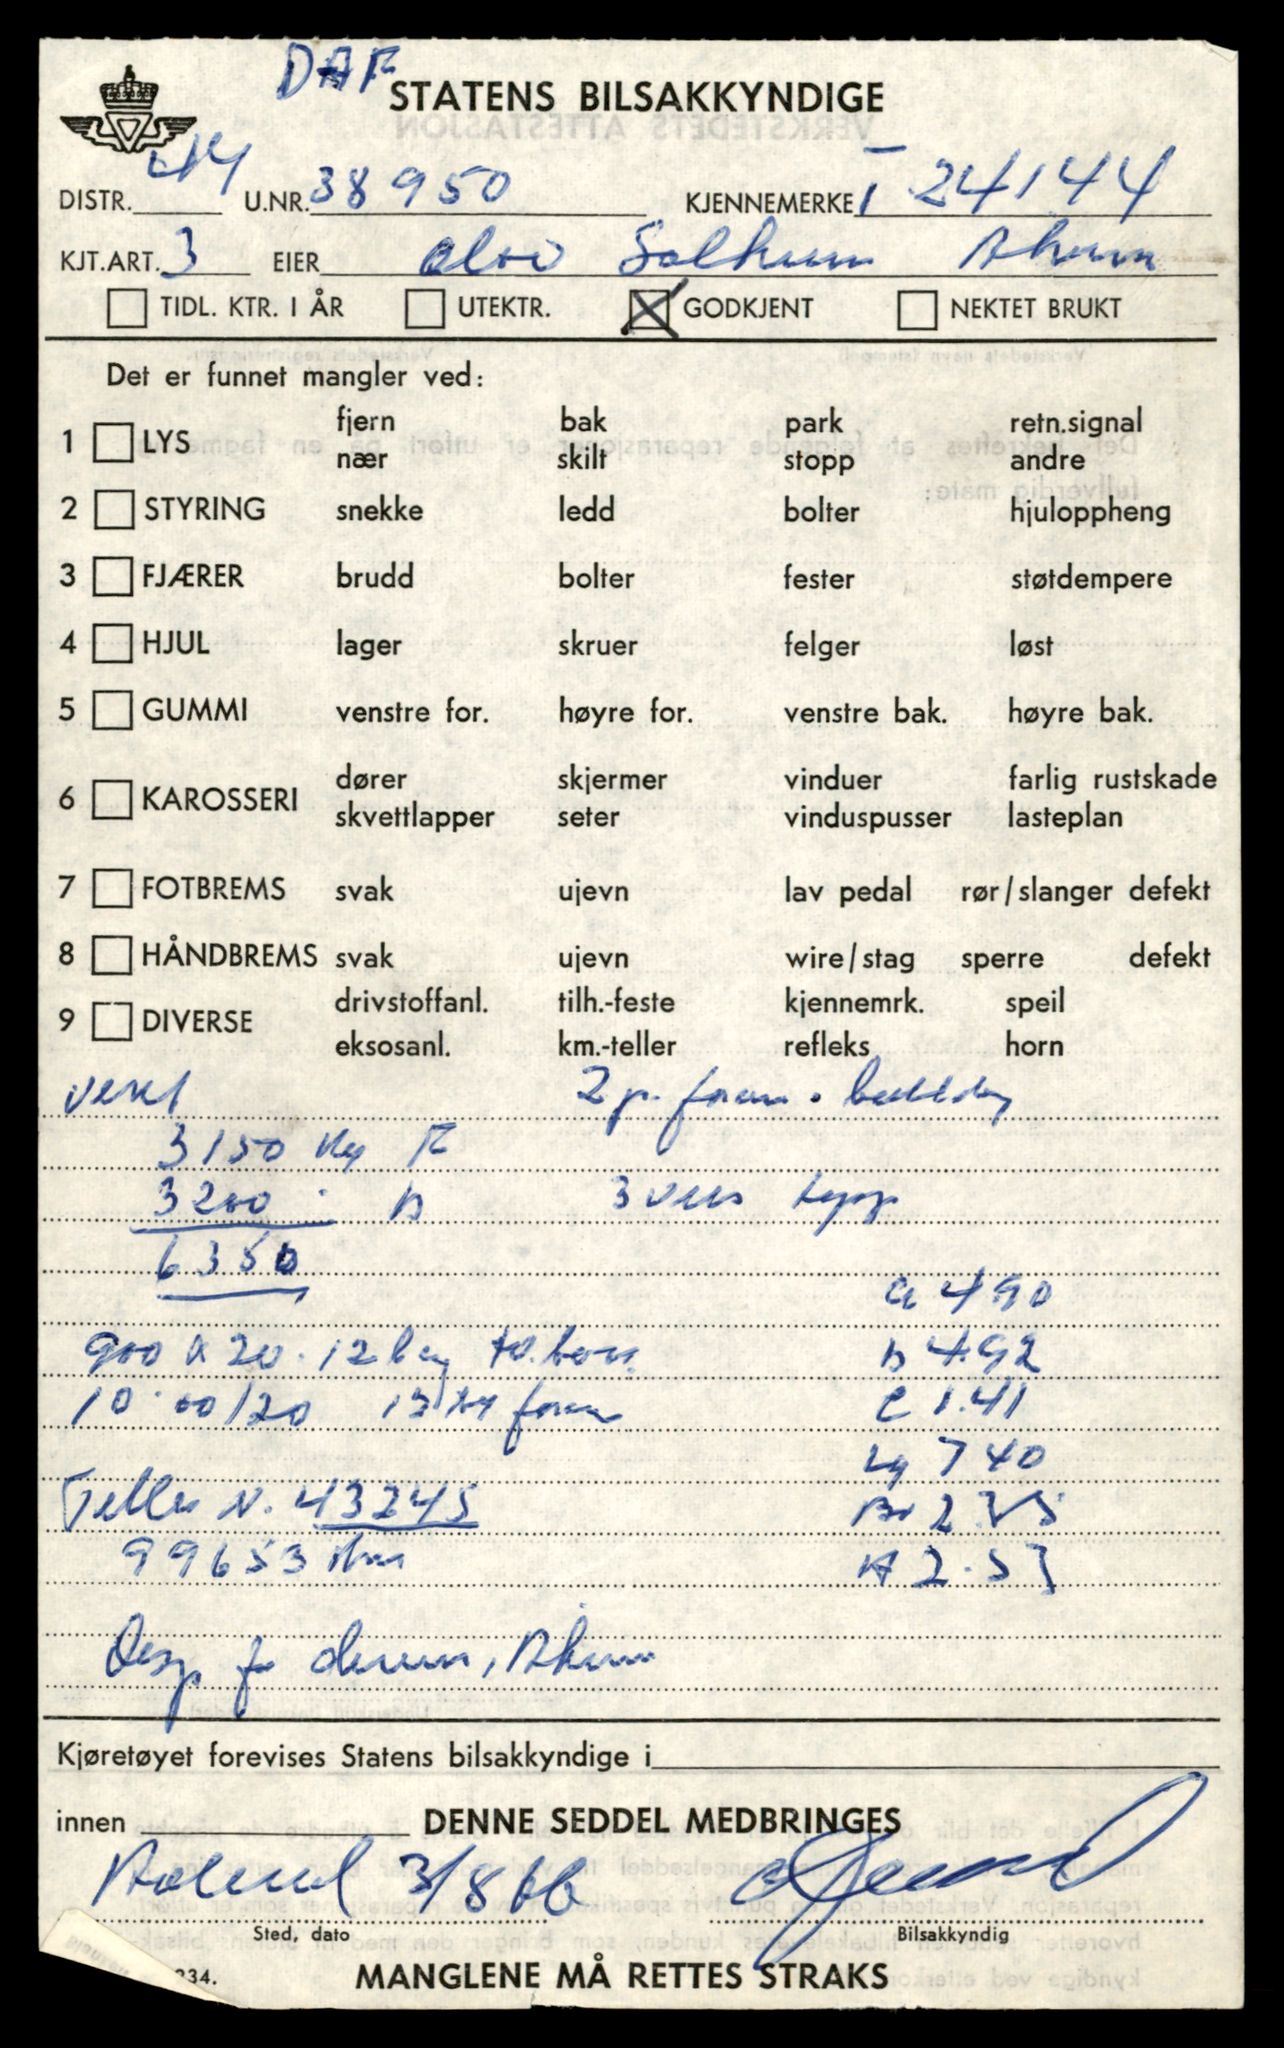 DAF
STATENS BILSAKKYNDIGE
DISTR. 44 U.NR. 38950 KJENNEMERKE T 24144
KJT.ART. 3 EIER Olav Solhum
TIDL. KTR. I ÅR UTEKTR. GODKJENT NEKTET BRUKT
Det er funnet mangler ved:
1 LYS fjern bak park retn.signal
nær skilt stopp andre
2 STYRING snekke ledd bolter hjuloppheng
3 FJÆRER brudd bolter fester støtdempere
4 HJUL lager skruer felger løst
5 GUMMI venstre for. høyre for. venstre bak. høyre bak.
6 KAROSSERI dører skjermer vinduer farlig rustskade
skvettlapper seter vinduspusser lasteplan
7 FOTBREMS svak ujevn lav pedal rør/slanger defekt
8 HÅNDBREMS svak ujevn wire/stag sperre defekt
9 DIVERSE drivstoffanl. tilh.-feste kjennemrk. speil
eksosanl. km.-teller refleks horn
vekt 2 p. foran
3150 kg F
3200 B 3 veis tipp
6350
a 490
900 x 20. 12 B 4.92
10.00/20 foran C 1.41
Lg 740
Teller N. 43245 Br 2.35
99653 Km H 2.53
Kjøretøyet forevises Statens bilsakkyndige i
innen DENNE SEDDEL MEDBRINGES
3/8 66
Sted, dato Bilsakkyndig
234. MANGLENE MÅ RETTES STRAKS